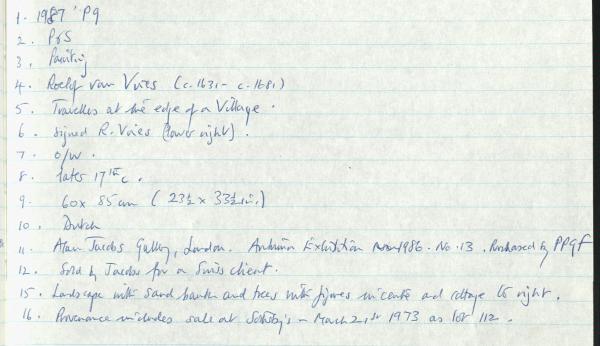 1. 1987 Pg
2. P&S
3. Painting
4. Roelof van Vries (c.1631 - c.1681)
5. Travellers at the edge of a Village.
6. Signed R. Vries (lower right).
7. O/W.
8. later 17th c.
9. 60 x 85 cm (23½ x 33½ in.)
10. Dutch
11. Alan Jacobs Gallery, London. Autumn Exhibition 1986. No. 13. Purchased by PPGF
12. Sold by Jacobs for a Swiss client.
15. Landscape with sand banks and trees with figures in centre and cottage to right.
16. Provenance includes sale at Sotheby's - March 21st 1973 as lot 112.